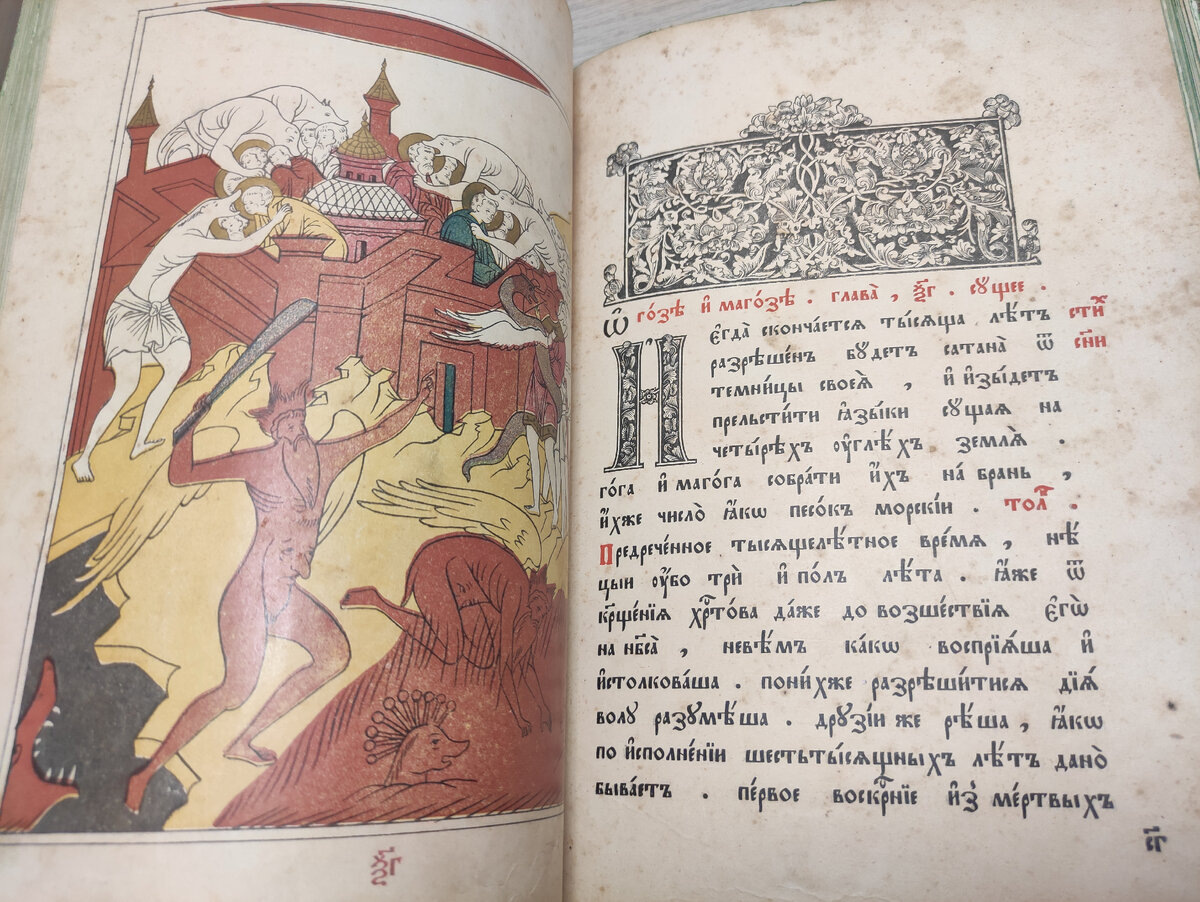 ѯ҃г
Ѡ го́зѣ и҆ маго́зѣ . глава̀ , ѯ҃г . су́щее .
И҆ є҆гда̀ сконча́ется ты́сяща лѣ́тъ стⷯи
разрѣше́нъ бу́детъ сатана̀ ѿ сн҃и
темни́цы своеѧ̀ , и҆ и҆зы́детъ
прельсти́ти ꙗ҆зы́ки су́щаѧ на
четы́рѣхъ оу҆глѣ́хъ землѧ̀ .
го́га и҆ маго́га собра́ти и҆́хъ на́ брань ,
и҆́хже число̀ ꙗ҆́кѡ песо́къ морскі́и . толⷦ .
Предрече́нное тысящелѣ́тное вре́мѧ , нѣ́
цыи оу҆́бо трѝ и҆ по́лъ лѣ́та . ꙗ҆́же ѿ
крⷭ҇ще́нїѧ хрⷭ҇то́ва да́же до возше́ствїѧ є҆гѡ̀
на нб҃са̀ , невѣ́мъ ка́кѡ воспрїѧ́ша и҆
и҆столкова́ша . пони́хже разрѣши́тисѧ дїѧ́
волу разумѣ́ша . друзі́и же рѣ́ша , ꙗ҆́кѡ
по и҆сполне́нїи шестьты́сящныхъ лѣ́тъ дано̀
быва́етъ . пе́рвое воскрⷭ҇нїе и҆з̾ ме́ртвыхъ
с҃г